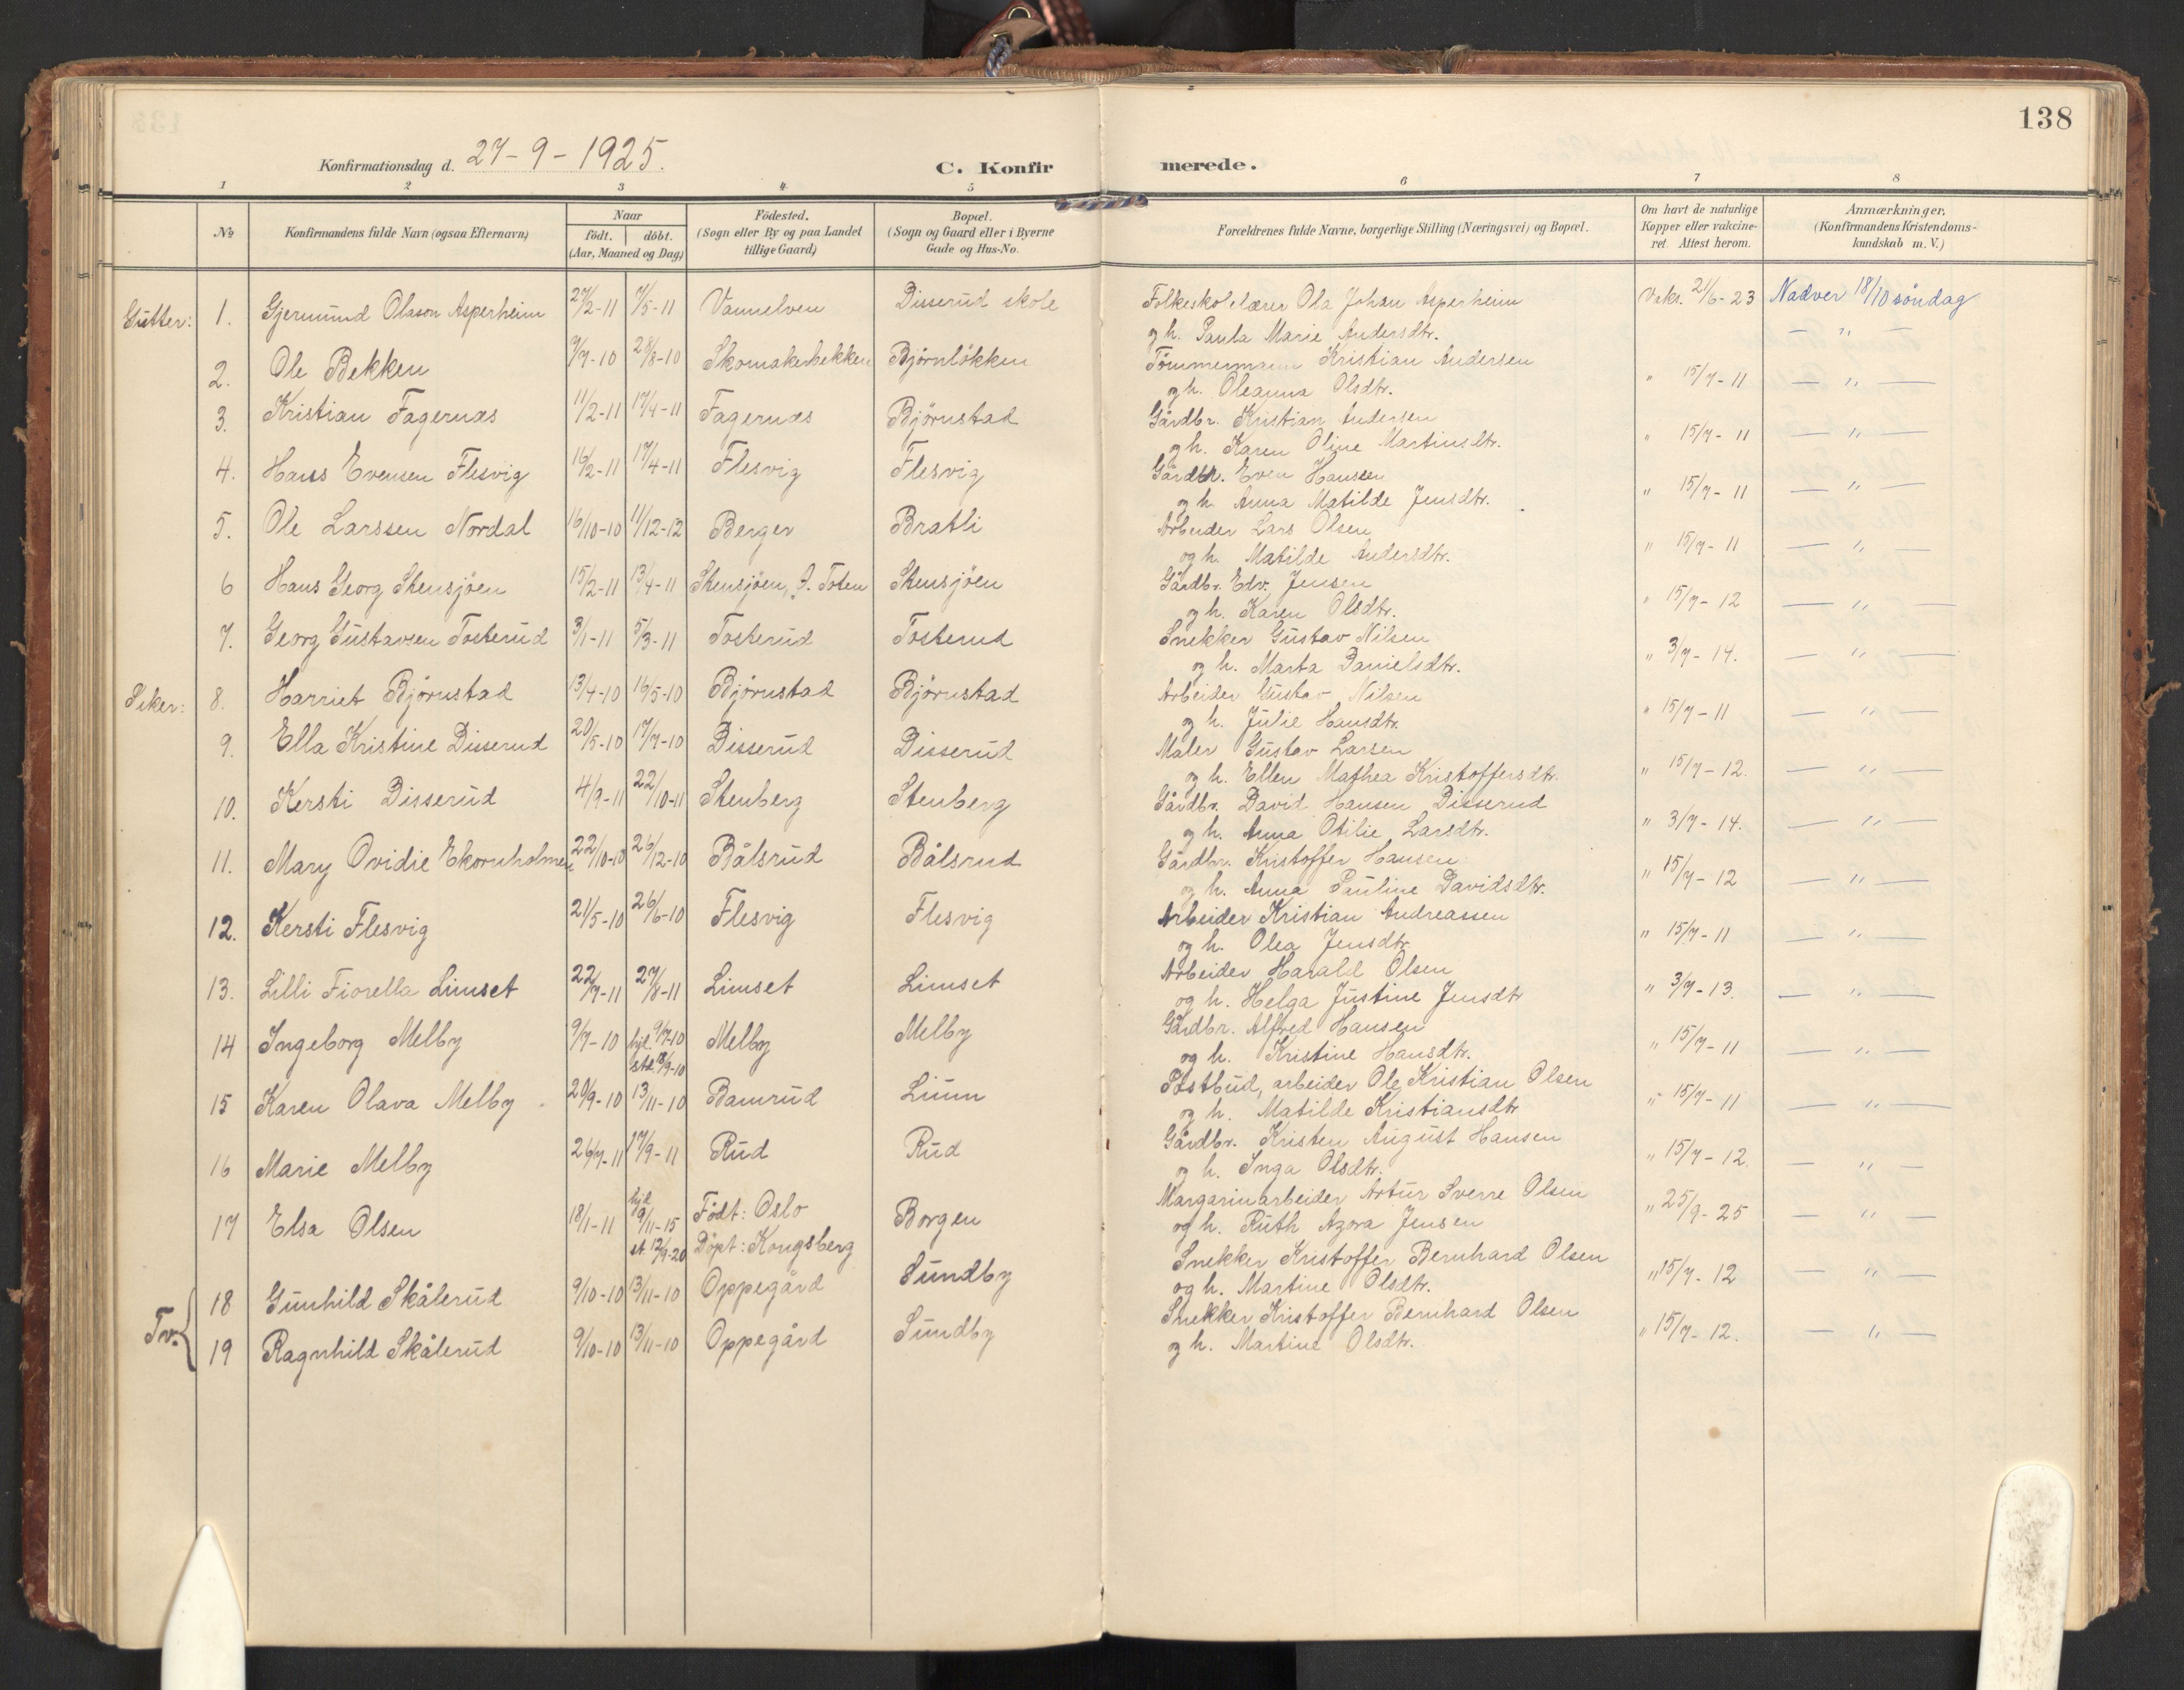 138
Konfirmationsdag d. 27-9-1925.
C. Konfirmerede.
1 2 3 4 5 6 7 8
No
Konfirmandens fulde Navn (ogsaa Efternavn)
Naar
födt. | döbt.
(Aar, Maaned og Dag)
Födested.
(Sogn eller By og paa Landet
tillige Gaard)
Bopæl.
(Sogn og Gaard eller i Byerne
Gade og Hus-No.
Forældrenes fulde Navne, borgerlige Stilling (Næringsvei) og Bopæl.
Om havt de naturlige
Kopper eller vakcine-
ret. Attest herom.
Anmærkninger.
(Konfirmandens Kristendoms-
kundskab m. V.)
Gutter: 1. Gjermund Olason Asperheim 27/2-11 7/5-11 Vannelven Disserud skole Folkeskolelærer Ola Johan Asperheim Vaks. 21/6-23 Nadver 18/10 söndag
og h. Paula Marie Andersdtr. — " —
2. Ole Bekken 9/7-10 28/8-10 Skomakerbekken Björnlökken Tömmermann Kristian Andersen
og h. Oleanna Olsdtr. " 15/7-11 — " —
3. Kristian Fagernæs 11/2-11 17/4-11 Fagernæs Björnstad Gårdbr. Kristian Andersen
og h. Karen Oline Martinsdtr. " 15/7-11 — " —
4. Hans Evensen Flesvig 16/2-11 17/4-11 Flesvig Flesvig Gårdbr. Even Hanssen
og h. Anna Matilde Jensdtr. " 15/7-11 — " —
5. Ole Larssen Nordal 16/10-10 11/12-12 Berger Bratli Arbeider Lars Olsen
og h. Matilde Andersdtr. " 15/7-11 — " —
6 Hans Georg Stensjöen 15/2-11 13/4-11 Stensjöen, Ö. Toten Stensjöen Gårdbr. Edv. Jensen
og h. Karen Olsdtr. " 15/7-12 — " —
7. Georg Gustavsen Tosterud 3/1-11 5/3-11 Tosterud Tosterud Snekker Gustav Nilsen
og h. Marta Danielsdtr. " 3/7-14. — " —
Piker: 8. Harriet Björnstad 13/4-10 16/5-10 Björnstad Björnstad Arbeider Gustav Nilsen
og h. Julie Hansdtr. " 15/7-11 — " —
9. Ella Kristine Disserud 20/5-10 17/7-10 Disserud Disserud Maler Gustav Larsen
og h. Ellen Mathea Kristoffersdtr. " 15/7-12. — " —
10. Kersti Disserud 4/9-11 22/10-11 Stenberg Stenberg Gårdbr. David Hansen Disserud
og h. Anna Otilie Larsdtr. " 3/7-14. — " —
11. Mary Ovidie Ekornholmen 22/10-10 26/12-10 Bålsrud Bålsrud Gårdbr. Kristoffer Hansen
og h. Anna Pauline Davidsdtr. " 15/7-12 — " —
12. Kersti Flesvig 21/5-10 26/6-10 Flesvig Flesvig Arbeider Kristian Andreassen
og h. Olea Jensdtr. " 15/7-11 — " —
13. Lilli Fiorella Limset 22/7-11 27/8-11 Limset Limset Arbeider Harald Olsen
og h. Helga Justine Jensdtr " 3/7-13. — " —
14 Ingeborg Melby 9/7-10 hjd. 9/7-10 Melby Melby Gårdbr. Alfred Hansen
st. 18/9-10 og h. Kristine Hansdtr. " 15/7-11 — " —
15 Karen Olava Melby 20/9-10 13/11-10 Bamrud Lium Postbud, arbeider Ole Kristian Olsen
og h. Matilde Kristiansdtr " 15/7-11 — " —
16 Marie Melby 26/7-11 17/9-11 Rud Rud Gårdbr. Kristen August Hansen
og h. Inga Olsdtr. " 15/7-12. — " —
17 Elsa Olsen 18/1-11 hjd 9/11-15 Födt: Oslo Borgen Margarinarbeider Artur Sverre Olsen
st 12/9-20 Döpt: Kongsberg og h. Ruth Azora Jensen " 25/9-25 — " —
Tv. 18 Gunhild Skålerud 9/10-10 13/11-10 Oppegård Sundby Snekker Kristoffer Bernhard Olsen
og h. Martine Olsdtr. " 15/7-12 — " —
19 Ragnhild Skålerud 9/10-10 13/11-10 Oppegård Sundby Snekker Kristoffer Bernhard Olsen
og h. Martine Olsdtr. " 15/7-12. — " —